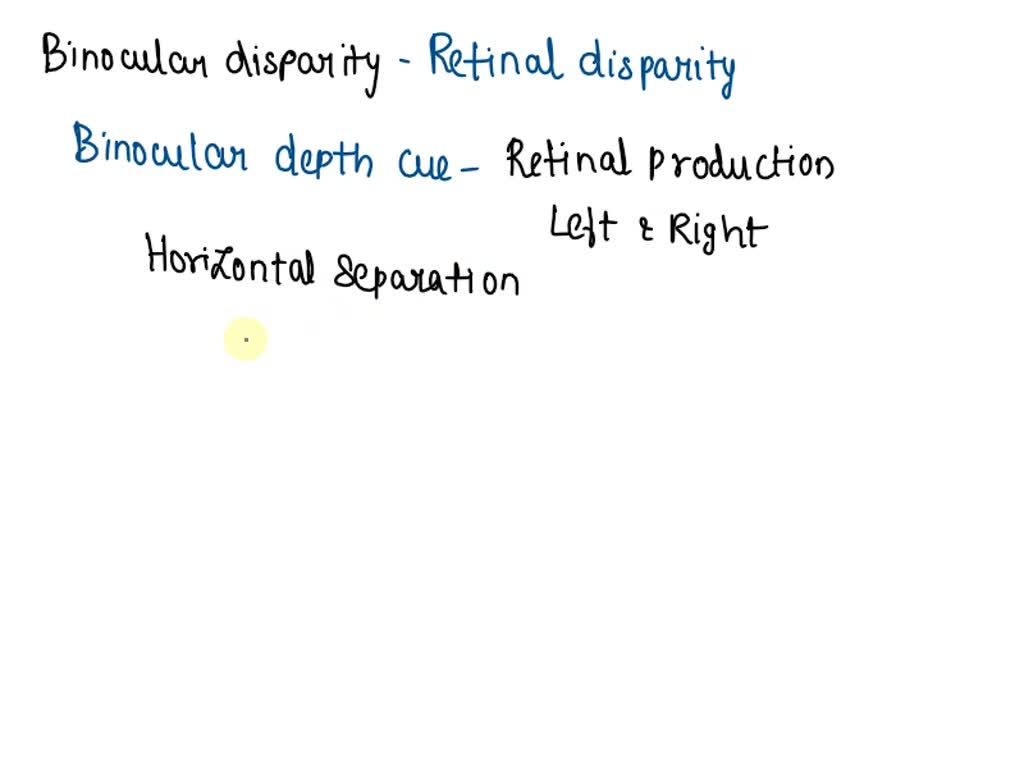 Binocular disparity - Retinal disparity
Binocular depth cue - Retinal production
Left & Right
Horizontal separation